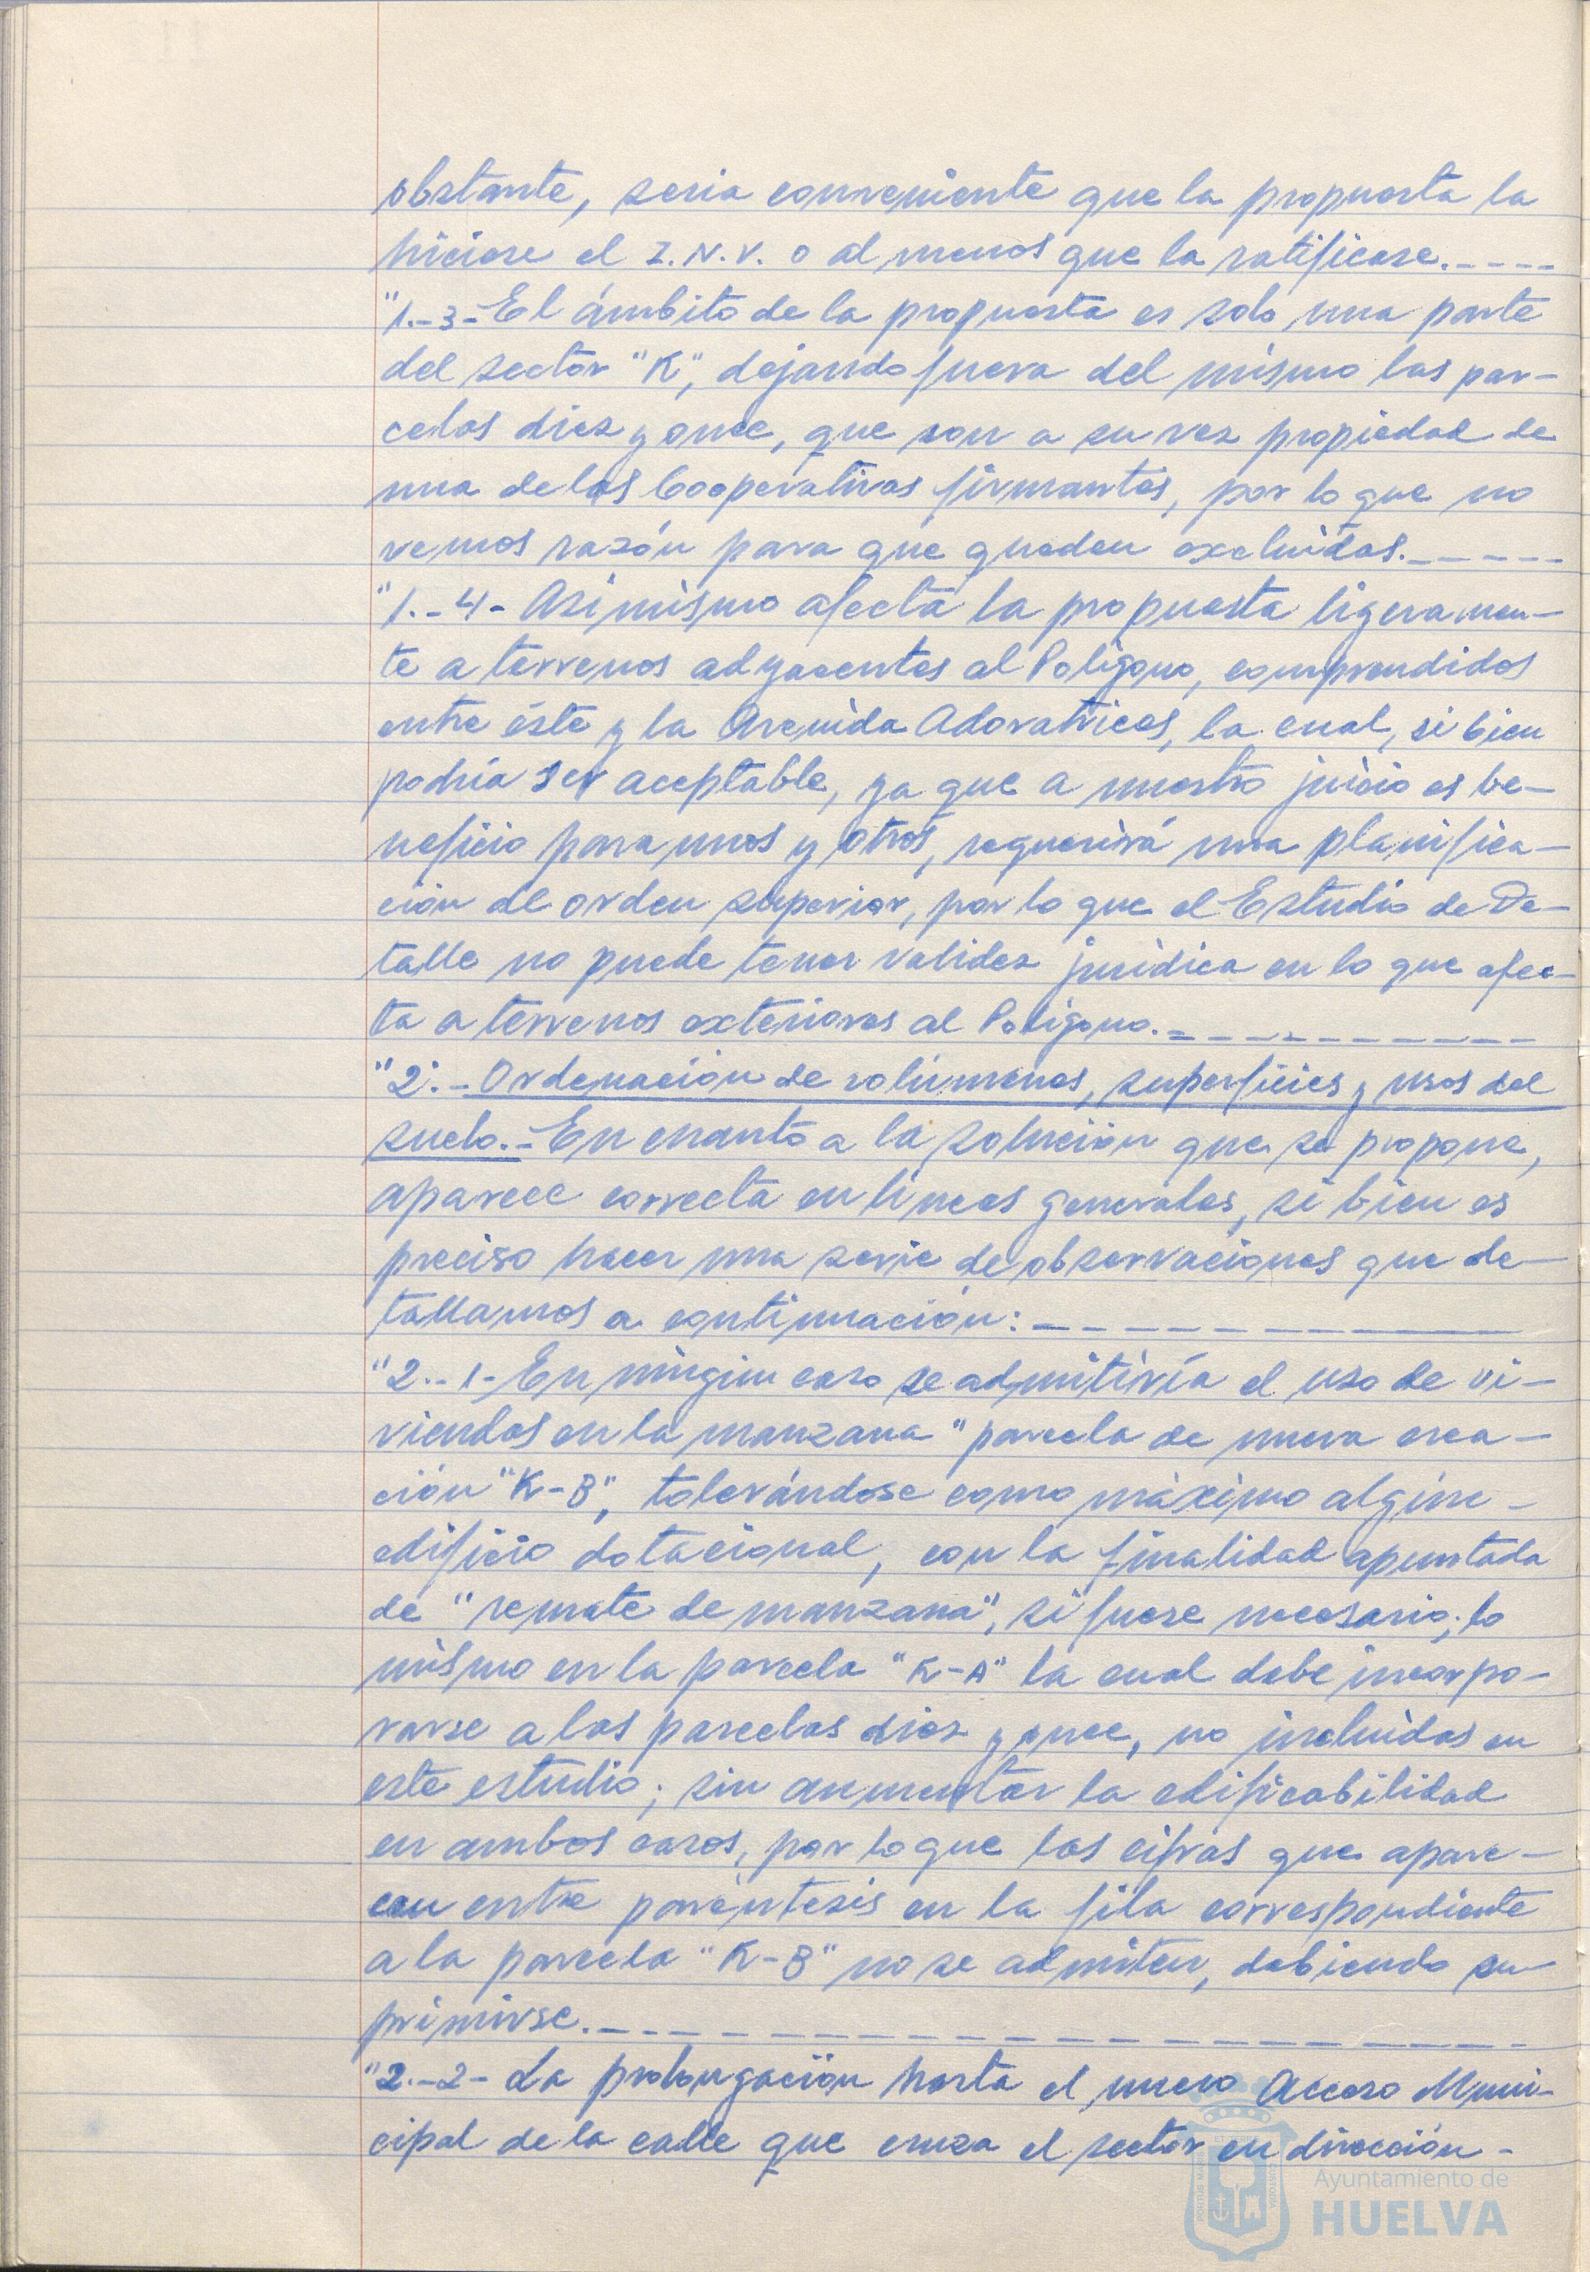 obstante, seria conveniente que la propuesta la
hiciese el I.N.V. o al menos que la ratificase.-----
"1.-3-El ámbito de la propuesta es solo una parte
del sector "K", dejando fuera del mismo las par-
celas diez y once, que son a su vez propiedad de
una de las Cooperativas firmantes, por lo que no
vemos razón para que queden excluidas.-----
"1.-4- Asimismo afecta la propuesta ligeramen-
te a terrenos adyacentes al Polígono, comprendidos
entre éste y la Avenida Adoratrices, la cual, si bien
podría ser aceptable, ya que a nuestro juicio es be-
neficio para unos y otros, requerirá una planifica-
ción de orden superior, por lo que el Estudio de De-
talle no puede tener validez jurídica en lo que afec-
ta a terrenos exteriores al Polígono.----------
"2.-Ordenación de volúmenes, superficies y usos del
suelo.-En cuanto a la solución que se propone,
aparece correcta en líneas generales, si bien es
preciso hacer una serie de observaciones que de-
tallamos a continuación:----------
"2.-1-En ningún caso se admitiría el uso de vi-
viendas en la manzana "parcela de nueva crea-
ción "K-B", tolerándose como máximo algún-
edificio dotacional, con la finalidad apuntada
de "remate de manzana", si fuese necesario; lo
mismo en la parcela "K-A" la cual debe incorpo-
rarse a las parcelas diez y once, no incluidas en
este estudio; sin aumentar la edificabilidad
en ambos casos, por lo que las cifras que apare-
cen entre paréntesis en la fila correspondiente
a la parcela "K-B" no se admiten, debiendo su-
primirse.---------------
"2.-2- La prolongación hasta el nuevo Acceso Muni-
cipal de la calle que cruza el sector en dirección-
Ayuntamiento de
HUELVA